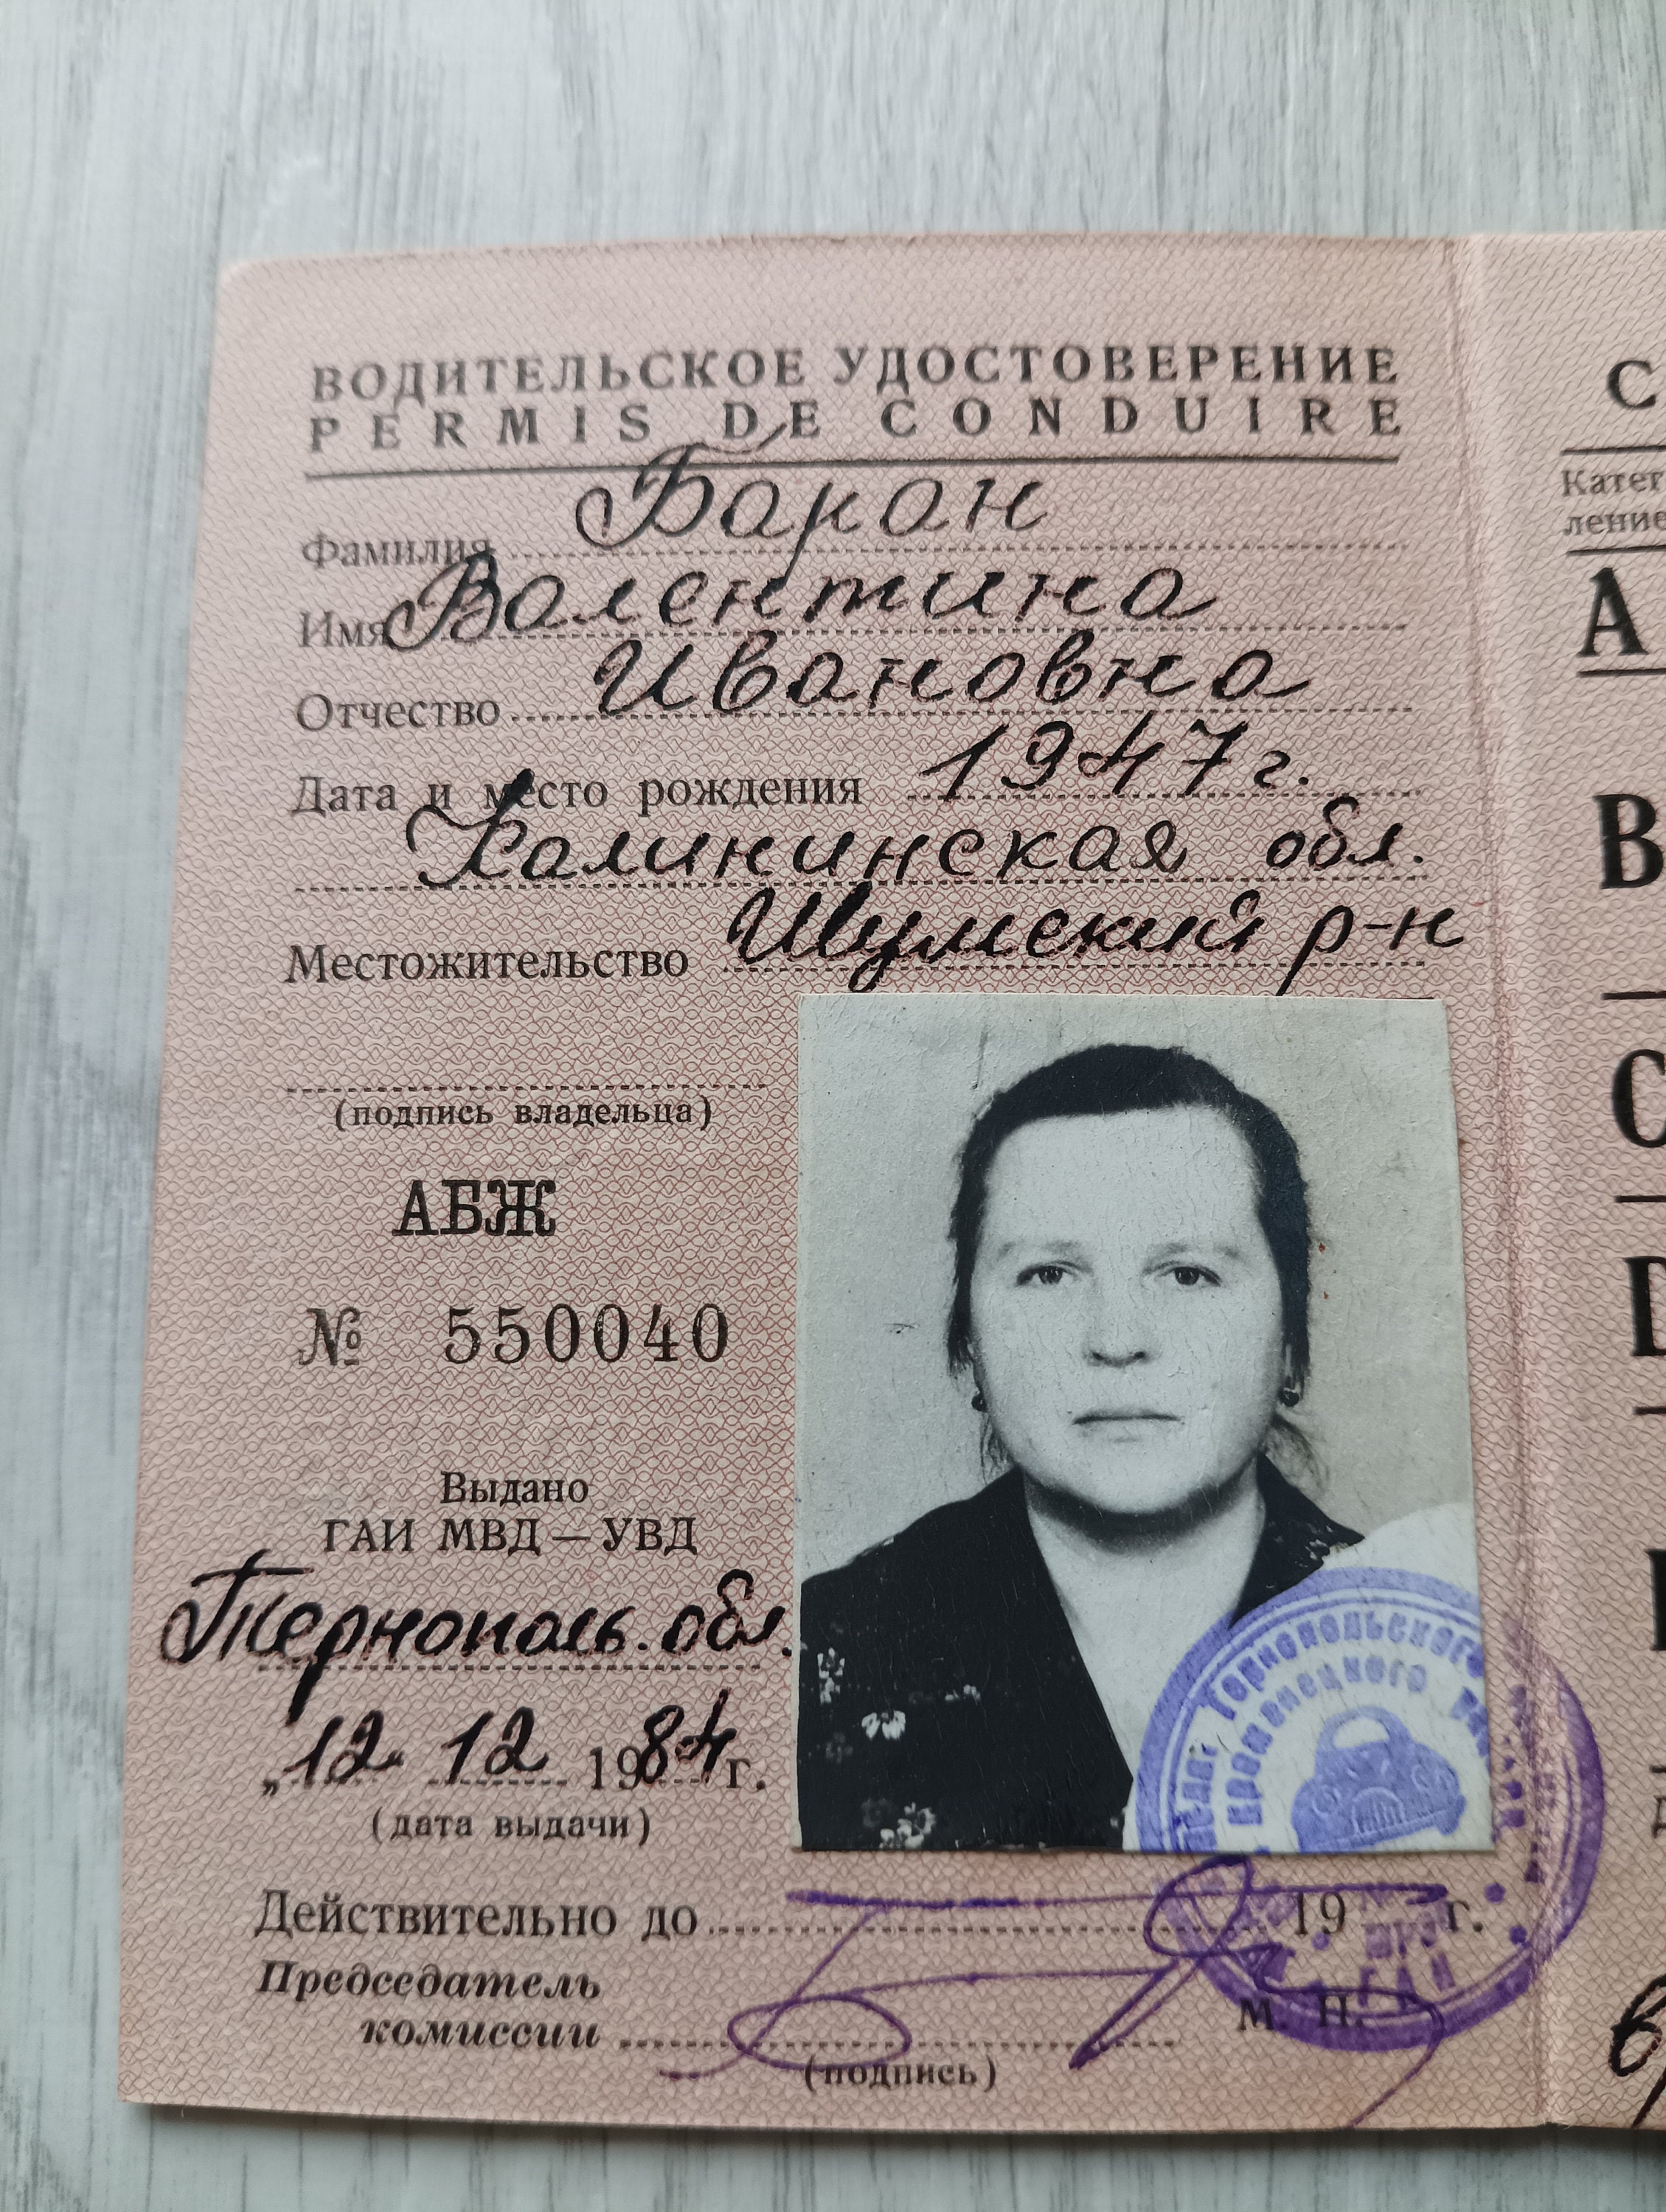 ВОДИТЕЛЬСКОЕ УДОСТОВЕРЕНИЕ
PERMIS DE CONDUIRE
Фамилия Баран
Имя Валентина
Отчество Ивановна
Дата и место рождения 1947г.
Калининская обл.
Местожительство Шумский р-н
(подпись владельца)
АБЖ
№ 550040
Выдано
ГАИ МВД — УВД
Тернополь. обл.
„12 12 1984 г.
(дата выдачи)
Действительно до 19 г.
Председатель
комиссии
М. П.
(подпись)
Тернопольского
ГАИ
С
Катег
ление
A
B
C
D